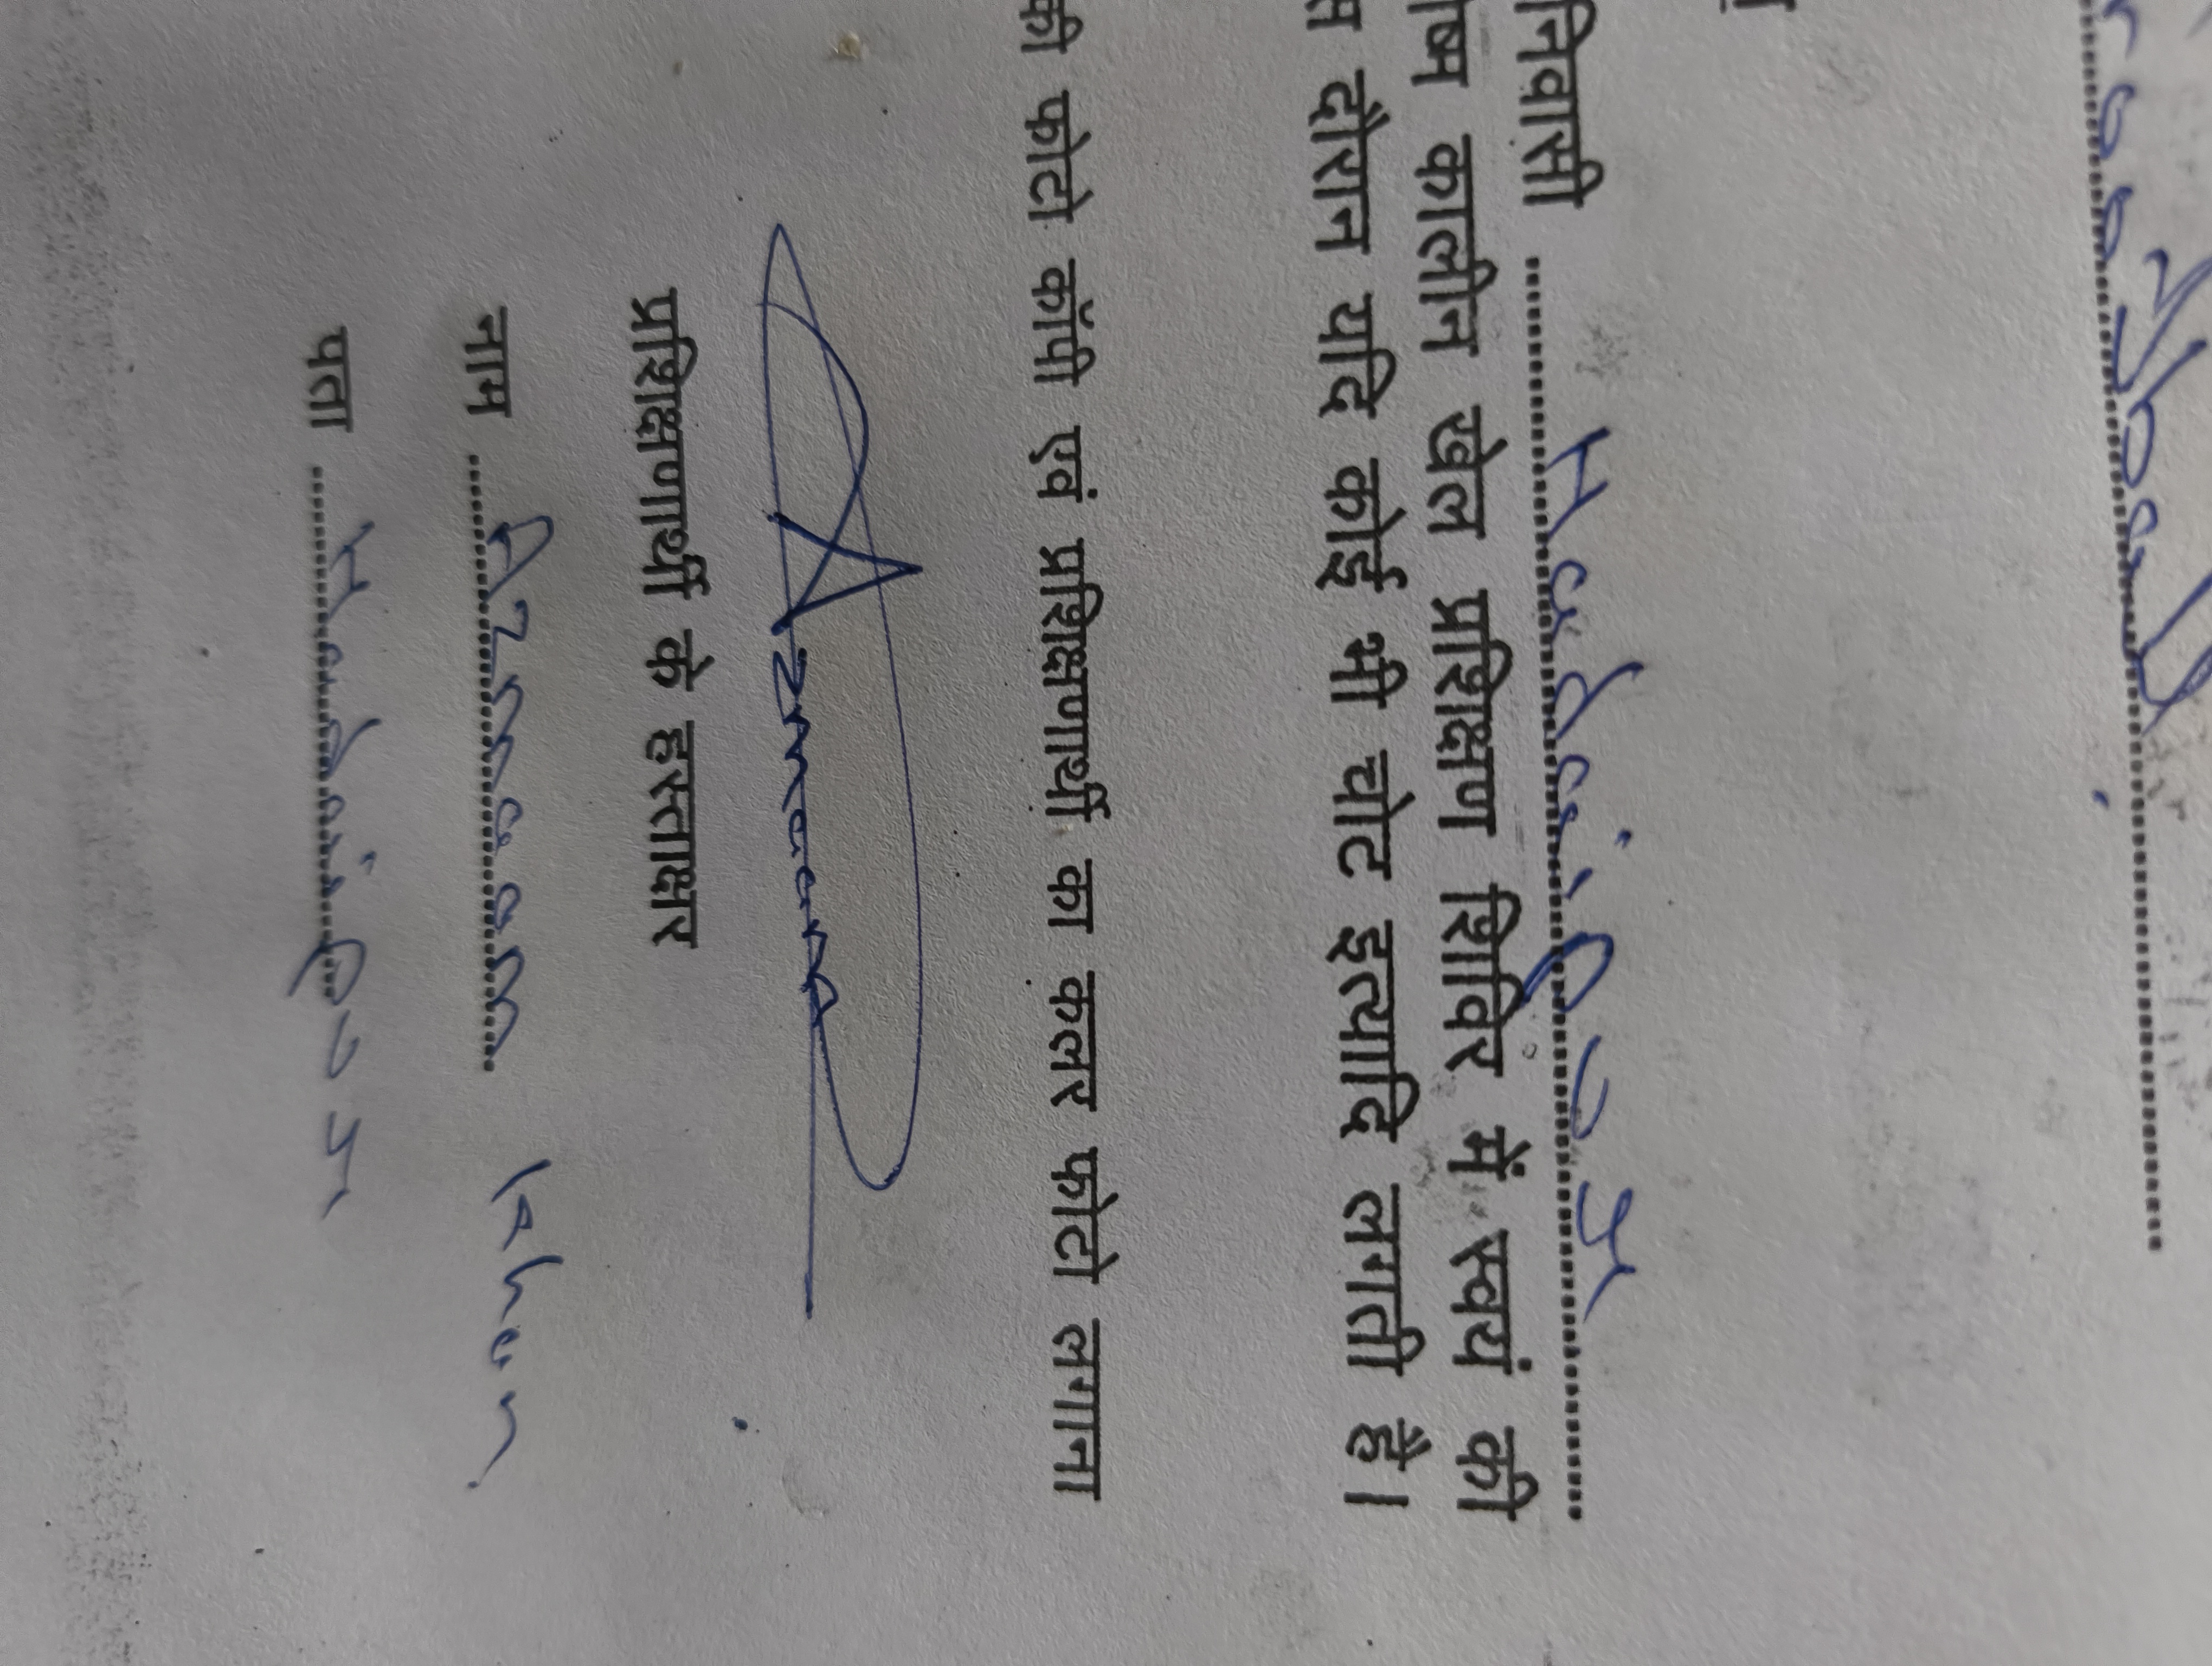 निवासी .......... Hadaipur
कालीन खेल प्रशिक्षण शिविर में स्वयं की
दौरान यदि कोई भी चोट इत्यादि लगती है।
की फोटो कॉपी एवं प्रशिक्षणार्थी का कलर फोटो लगाना
Azmaan
प्रशिक्षणार्थी के हस्ताक्षर
नाम .......... Azmaan Khan
पता .......... Hadaipur